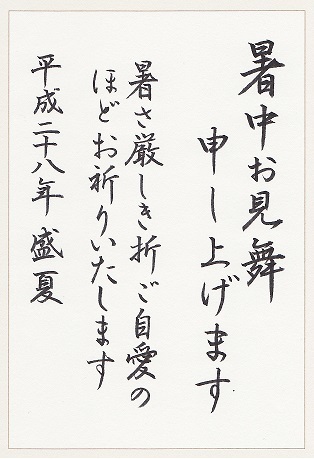 暑中お見舞
申し上げます
暑さ厳しき折ご自愛の
ほどお祈りいたします
平成二十八年 盛夏